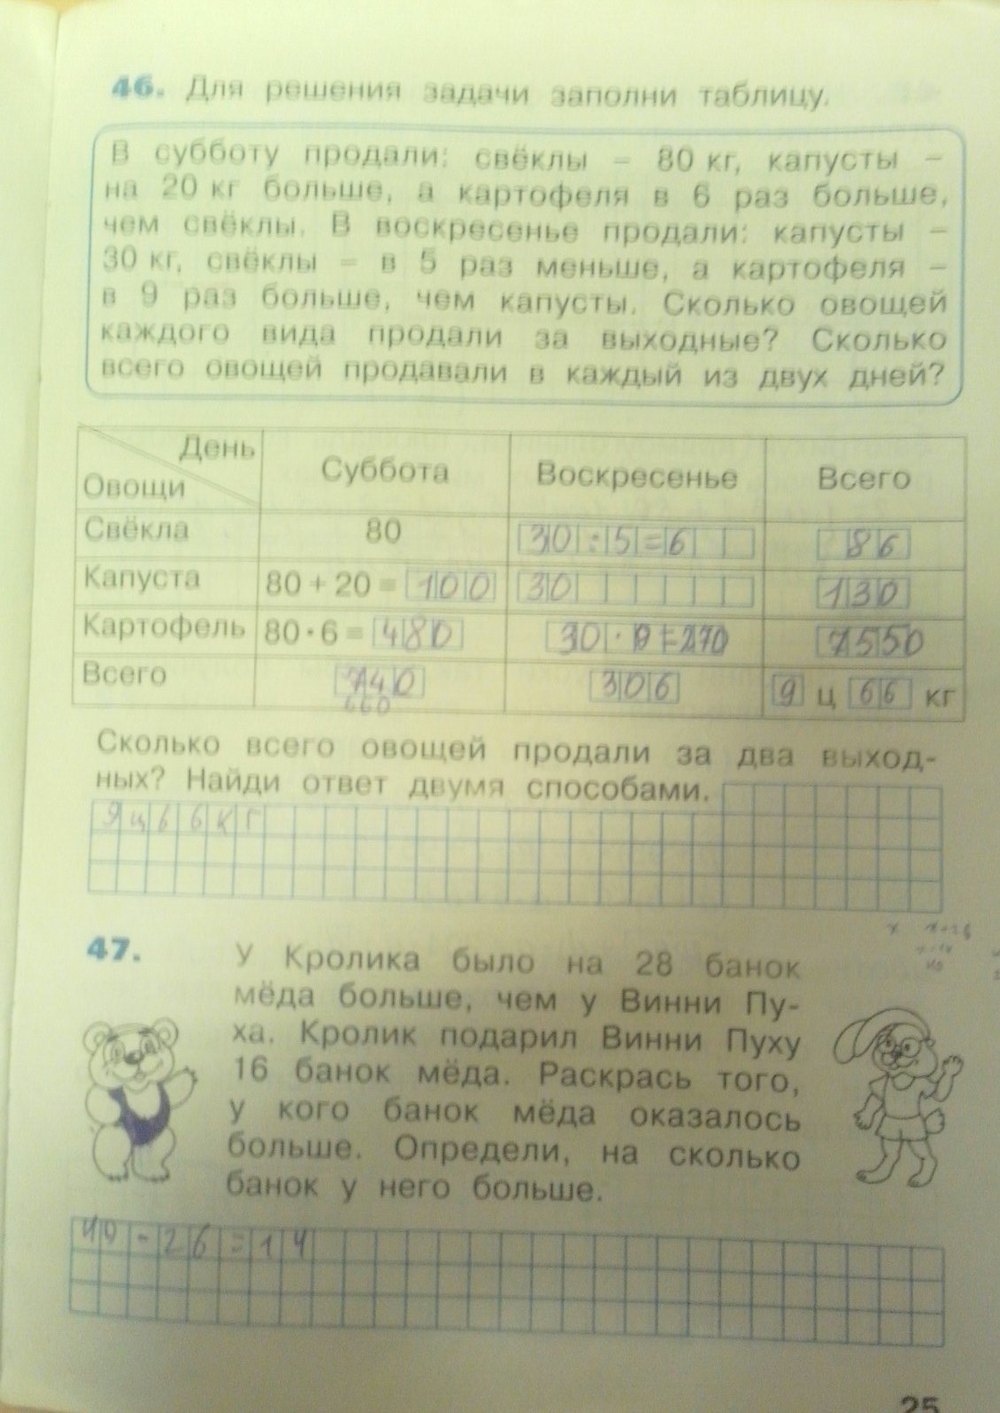 46. Для решения задачи заполни таблицу.
В субботу продали: свёклы – 80 кг, капусты –
на 20 кг больше, а картофеля в 6 раз больше,
чем свёклы. В воскресенье продали: капусты –
30 кг, свёклы – в 5 раз меньше, а картофеля –
в 9 раз больше, чем капусты. Сколько овощей
каждого вида продали за выходные? Сколько
всего овощей продавали в каждый из двух дней?
День
Овощи
Суббота Воскресенье Всего
Свёкла 80 30:5=6 86
Капуста 80 + 20 = 100 30 130
Картофель 80·6 = 480 30·9=270 7550
Всего 740 306 9 ц 66 кг
660
Сколько всего овощей продали за два выход-
ных? Найди ответ двумя способами.
9ц66кг
47. У Кролика было на 28 банок
мёда больше, чем у Винни Пу-
ха. Кролик подарил Винни Пуху
16 банок мёда. Раскрась того,
у кого банок мёда оказалось
больше. Определи, на сколько
банок у него больше.
40-26=14
25